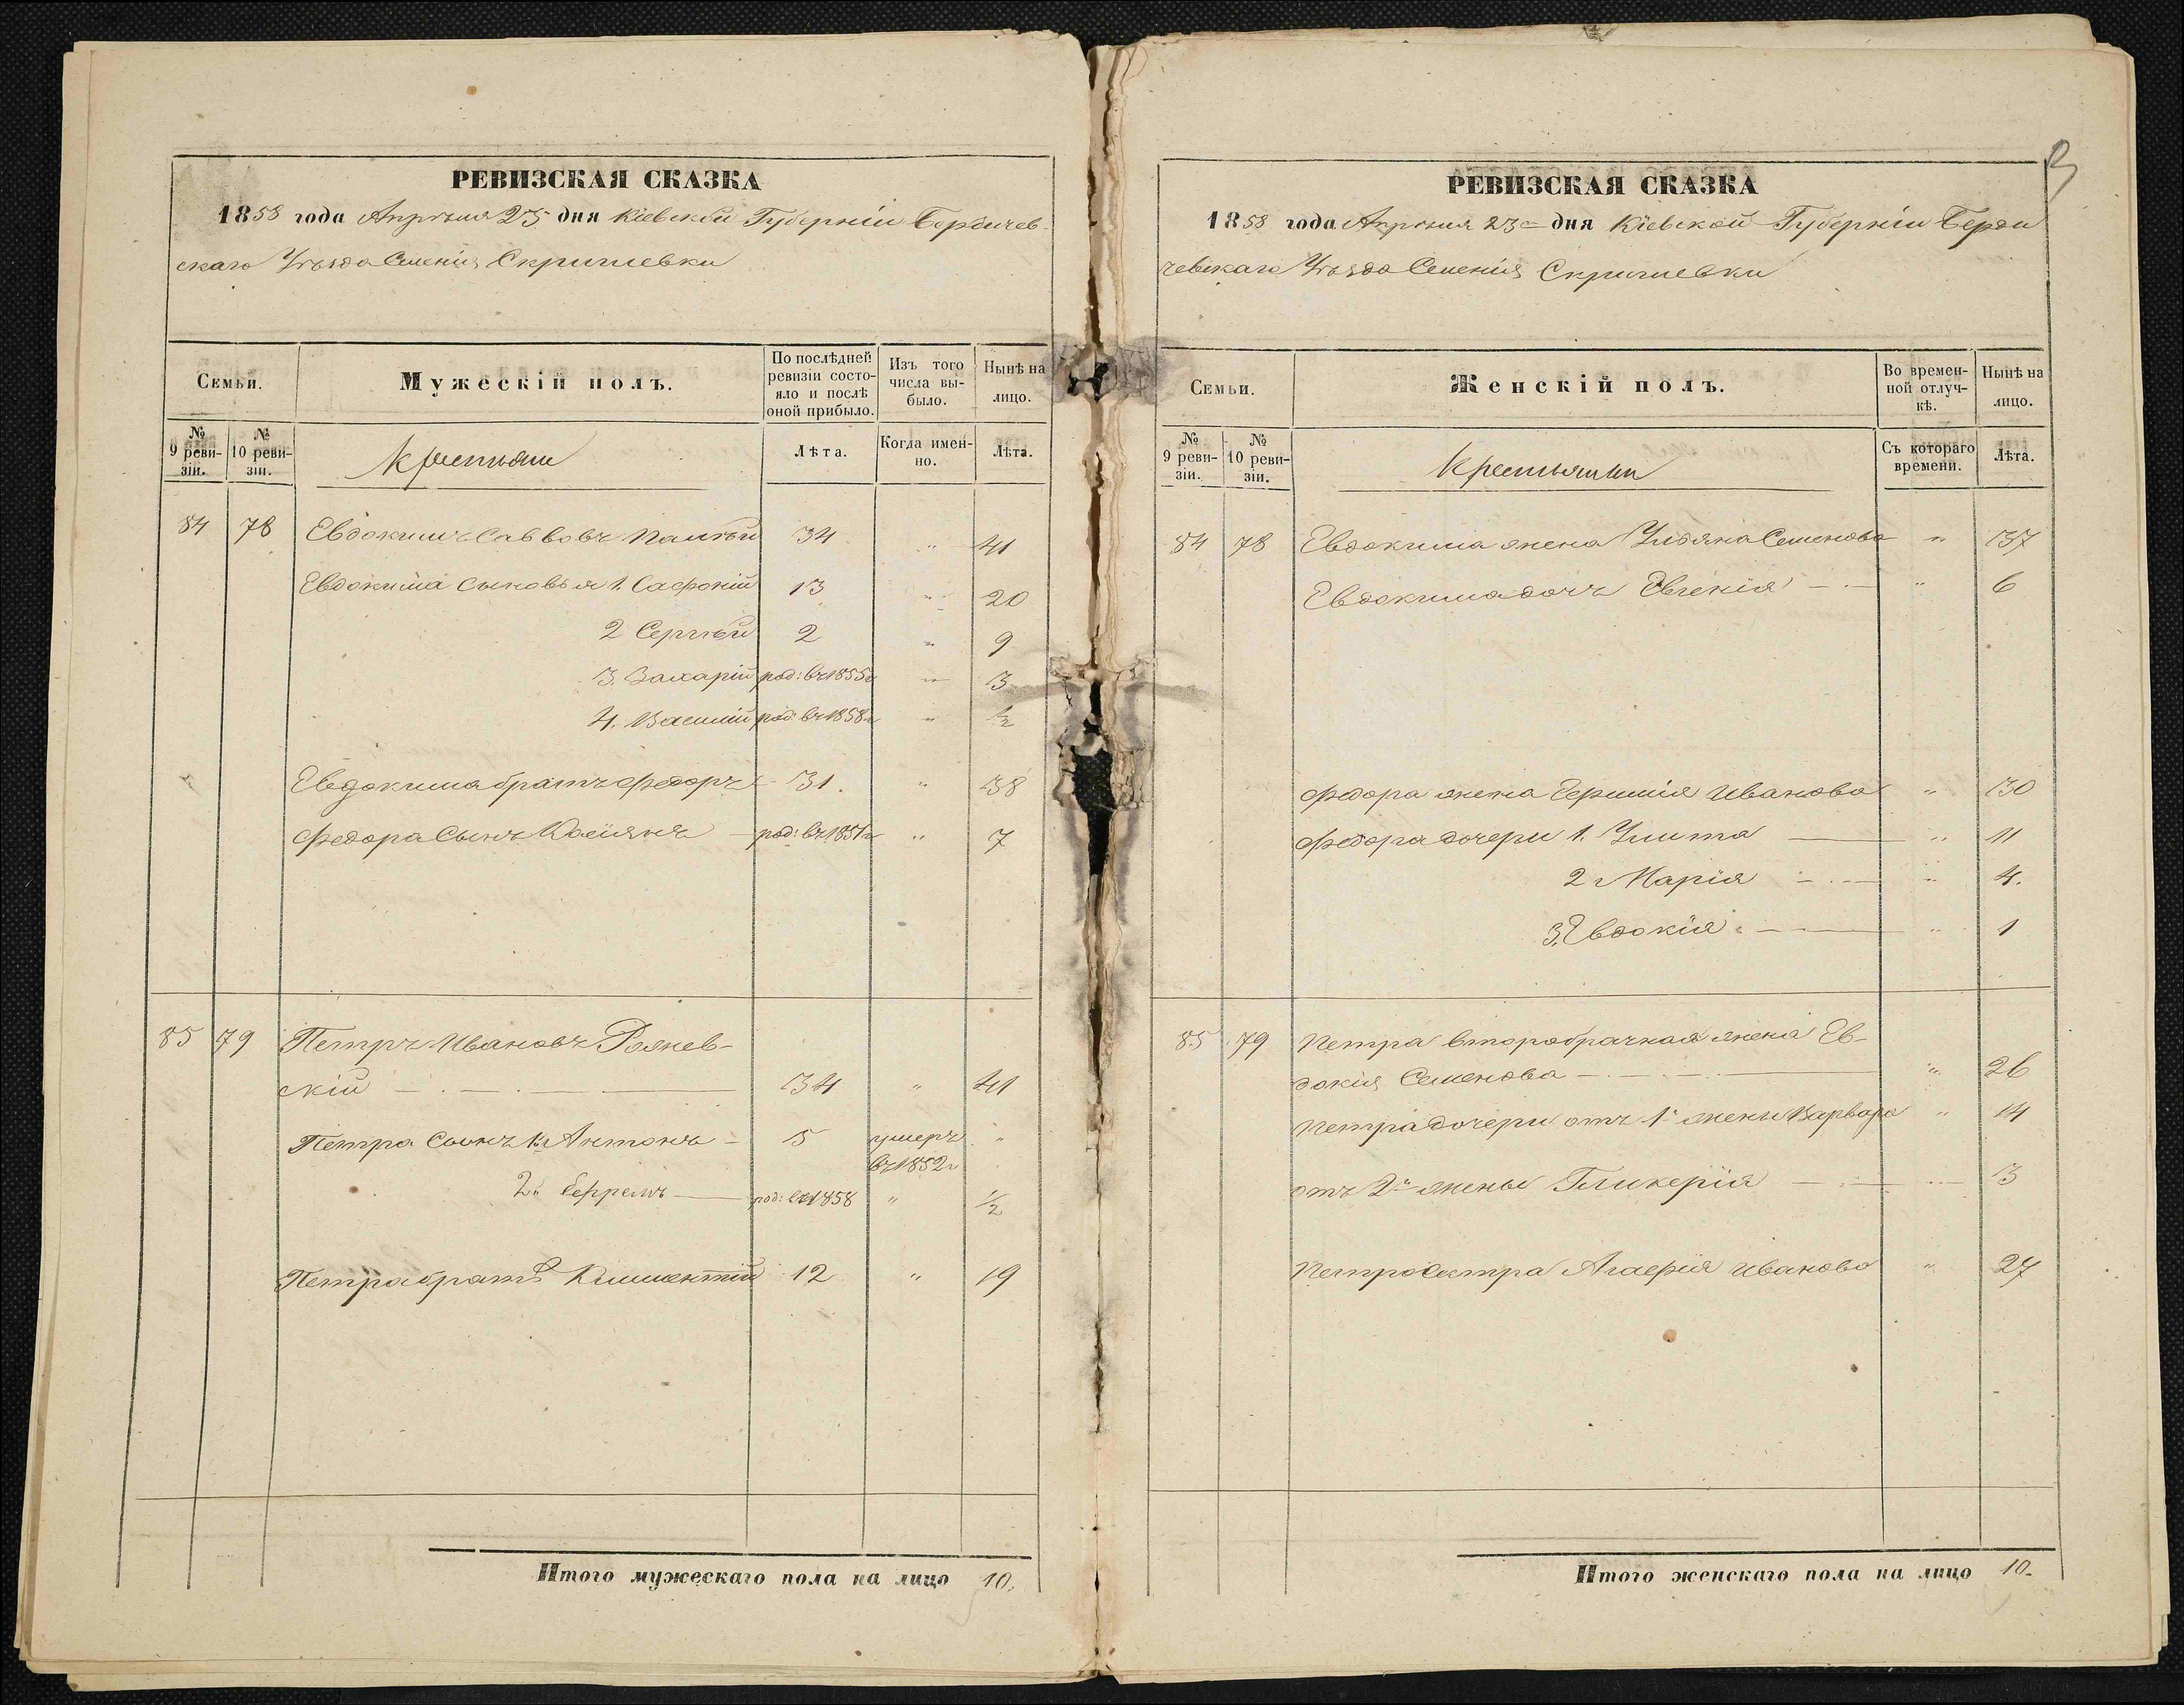 РЕВИЗСКАЯ СКАЗКА
1858 года Апрѣля 25 дня Кіевской Губерніи Бердичев-
скаго Уѣзда Селенія Скригилевки
Семьи.
Мужескій полъ.
По послѣдней ревизіи состояло и послѣ оной прибыло.
Изъ того числа выбыло.
Нынѣ на лицо.
№ 9 ревизіи.
№ 10 ревизіи.
Крестьяне
Лѣта.
Когда именно.
Лѣта.
84 78 Евдокимъ Савовъ 34 „ 41
Евдокима Сыновья 1. Сафроній 13 „ 20
2 Сергѣй 2 „ 9
3. Захарій род: въ 1855 г „ 3
4. Василій род: въ 1858 г „ ½
Евдокима братъ Федоръ 31. „ 38
Федора Сынъ Касіянъ род: въ 1851 г „ 7
85 79 Петръ Ивановъ Ряжев-
скій 34 „ 41
Петра Сынъ 1й Антонъ 5 умеръ „
въ 1852 г
2й Ефремъ род: въ 1858 „ ½
Петра братъ Климентій 12 „ 19
Итого мужескаго пола на лицо 10.
РЕВИЗСКАЯ СКАЗКА
1858 года Апрѣля 25 дня Кіевской Губерніи Берди
чевскаго Уѣзда Селенія Скригилевки
Семьи.
Женскій полъ.
Во временной отлучкѣ.
Нынѣ на лицо.
№ 9 ревизіи.
№ 10 ревизіи.
Крестьянки
Съ котораго времени.
Лѣта.
84 78 Евдокима жена Ульяна Семенова „ 37
Евдокима дочь Евгенія „ 6
Федора жена Иванова „ 30
Федора дочери 1. Улита „ 11
2 Марія „ 4.
3. Евдокія „ 1
85 79 Петра второбрачная жена Ев-
докія Семенова „ 26
Петра дочери отъ 1й жены Варвара „ 14
отъ 2й жены Гликерія „ 3
Петра Сестра Агафія Иванова „ 27
Итого женскаго пола на лицо 10.